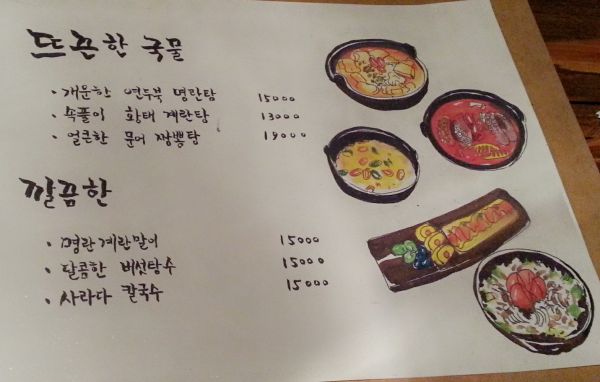 뜨끈한 국물
· 개운한 연두북 명란탕 15000
· 속풀이 황태 계란탕 13000
· 얼큰한 문어 짬뽕탕 19000
깔끔한
· 명란계란말이 15000
· 달콤한 버섯탕수 15000
· 사라다 칼국수 15000